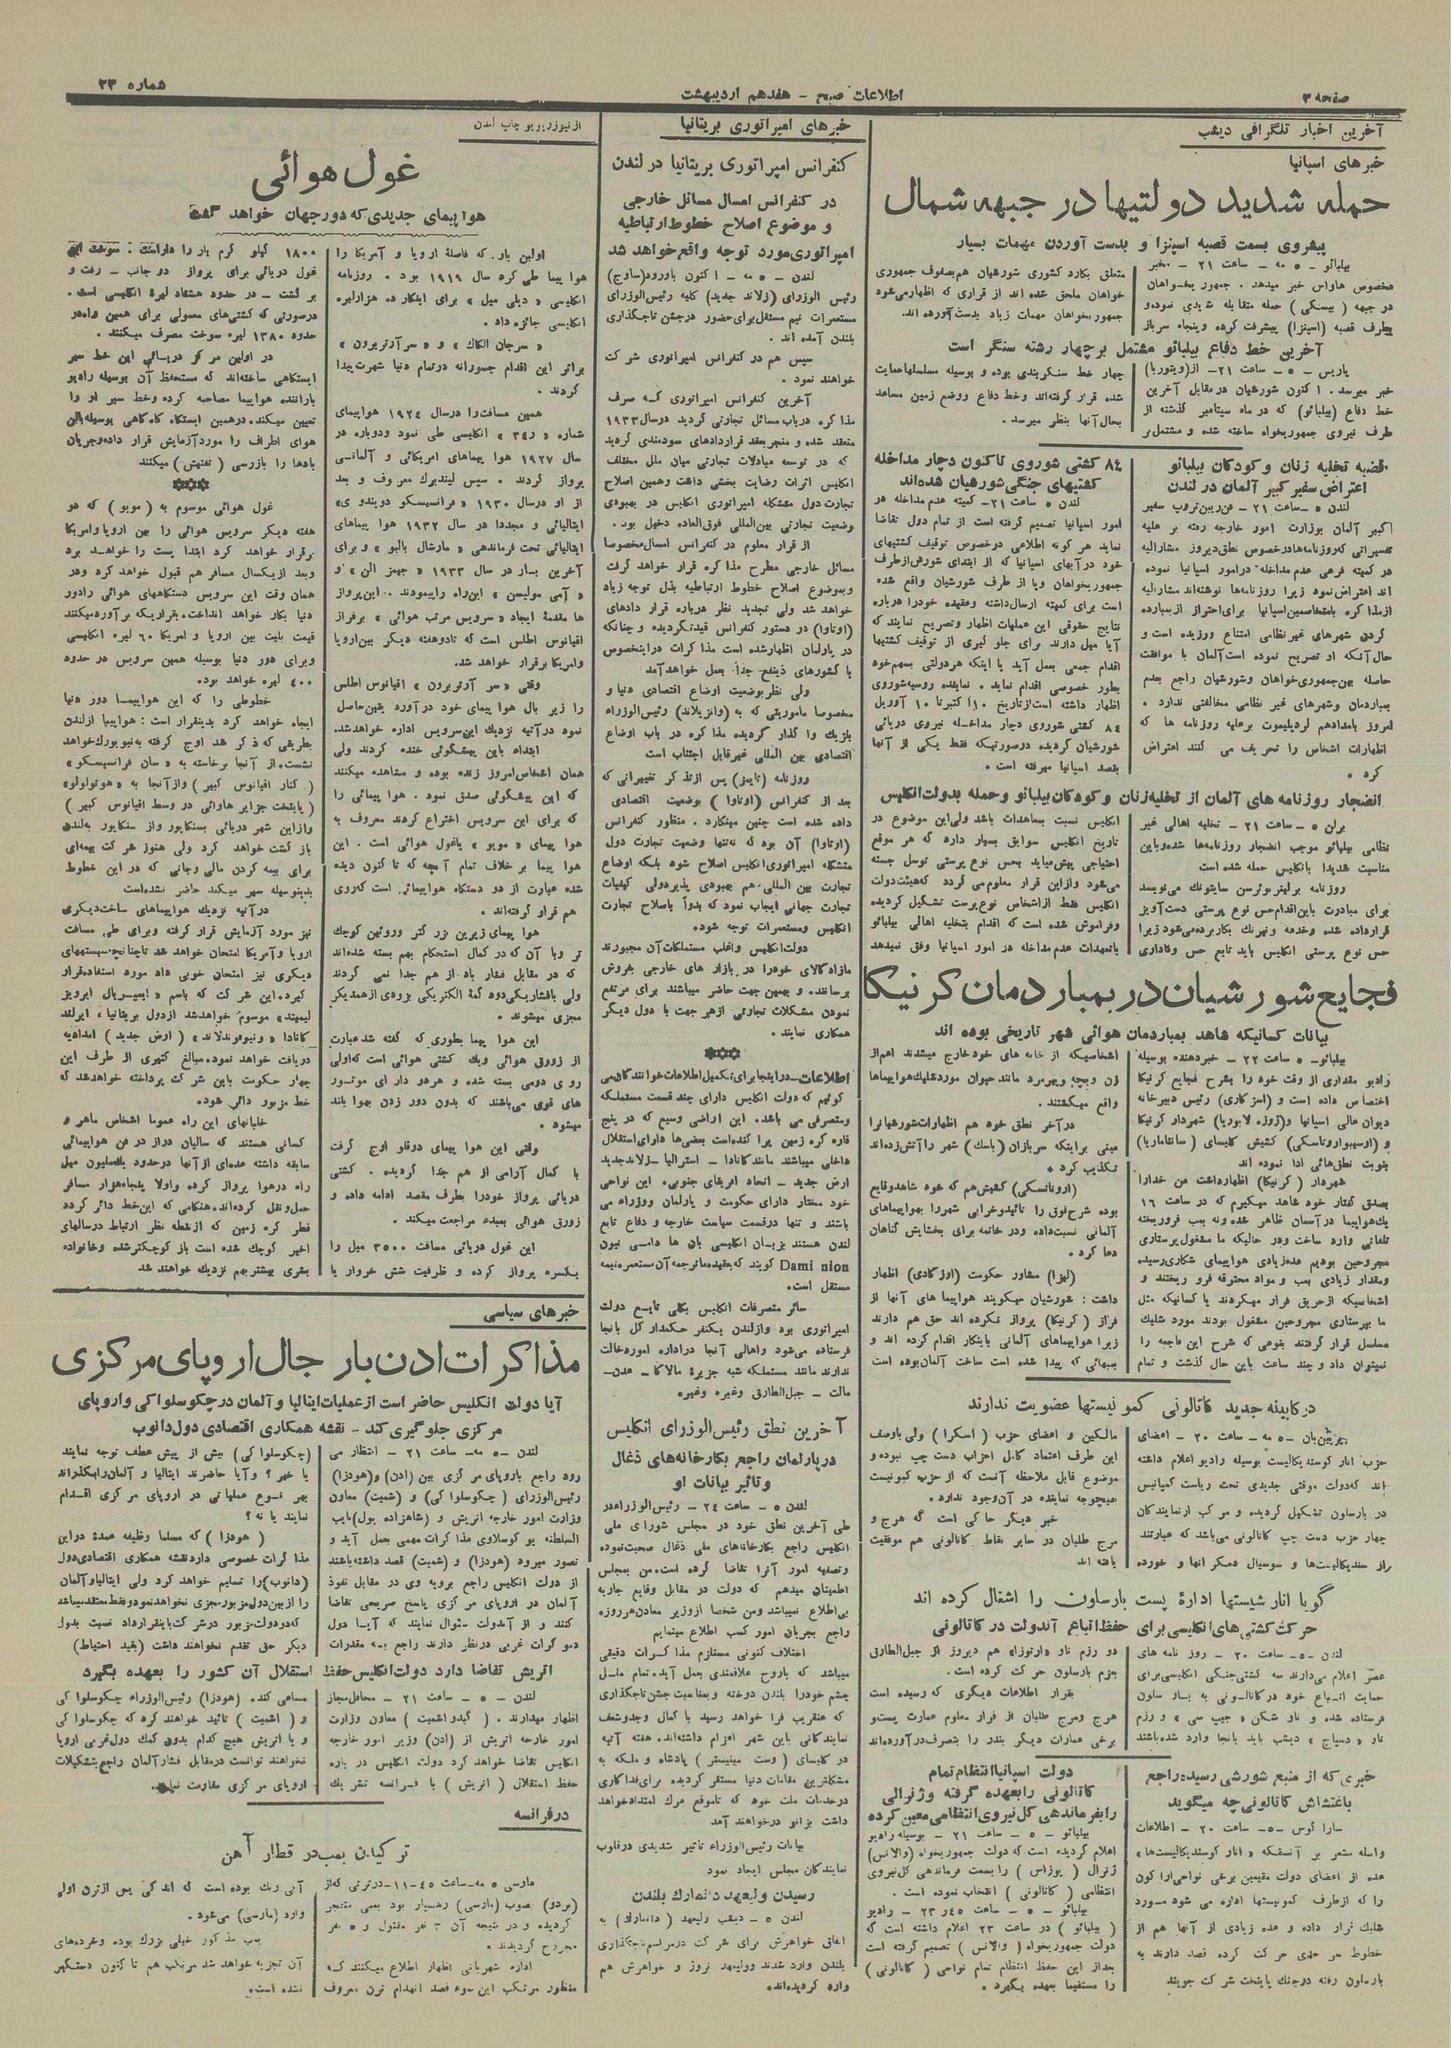 صفحه ۳
اطلاعات صبح - هفدهم اردیبهشت
شماره ۲۳
آخرین اخبار تلگرافی دیشب
خبرهای اسپانیا
حمله شدید دولتیها در جبهه شمال
پیشروی بسمت قصبه اسپنزا و بدست آوردن مهمات بسیار
بیلبائو - ۵ مه - ساعت ۲۱ - مخبر
مخصوص هاواس خبر میدهد. جمهوریخواهان
در جبهه (بیسکی) حمله متقابله شدیدی نموده و
بطرف قصبه (اسپنزا) پیشرفت کرده و پنجاه سرباز
متعلق بگارد کشوری شورشیان هم بصفوف جمهوری
خواهان ملحق شده اند از قراری که اظهار می‌شود
جمهوریخواهان مهمات زیاد بدست آورده اند.
آخرین خط دفاع بیلبائو مشتمل بر چهار رشته سنگر است
پاریس - ۵ - ساعت ۲۱ - از (ویتوریا)
خبر میرسد. اکنون شورشیان در مقابل آخرین
خط دفاع (بیلبائو) که در ماه سپتامبر گذشته از
طرف نیروی جمهوریخواه ساخته شده و مشتمل بر
چهار خط سنگربندی بوده و بوسیله مسلسلها حمایت
شده قرار گرفته‌اند و خط دفاع و وضع زمین مساعد
بحال آنها بنظر میرسد.
قضیه تخلیه زنان و کودکان بیلبائو
اعتراض سفیر کبیر آلمان در لندن
لندن ۵ - ساعت ۲۱ - فن ریبن تروپ سفیر
کبیر آلمان بوزارت امور خارجه رفته بر علیه
تفسیراتی که روزنامه‌ها در خصوص نطق دیروز مشارالیه
در کمیته فرعی عدم مداخله در امور اسپانیا نموده
اند اعتراض نمود زیرا روزنامه‌ها نوشته‌اند مشارالیه
از مذاکره با متخاصمین اسپانیا برای احتراز از بمبارده
کردن شهرهای غیر نظامی امتناع ورزیده است و
حال آنکه او تصریح نموده است آلمان با موافقت
حاصله بین جمهوری‌خواهان و شورشیان راجع بعدم
بمباردمان وشهرهای غیر نظامی مخالفتی ندارد.
امروز بامدادهم لردپلیموت برعلیه روزنامه ها که
اظهارات اشخاص را تحریف می کنند اعتراض
کرد.
۸۴ کشتی شوروی تاکنون دچار مداخله
کشتیهای جنگی شورشیان شده‌اند
لندن ۵ ساعت ۲۱ - کمیته عدم مداخله در
امور اسپانیا تصمیم گرفته است از تمام دول تقاضا
نماید هر گونه اطلاعی در خصوص توقیف کشتیهای
خود در آبهای اسپانیا که از ابتدای شورش از طرف
جمهوریخواهان ویا از طرف شورشیان واقع شده
است برای کمیته ارسال داشته و عقیده خود را درباره
نتایج حقوقی این عملیات اظهار و تصریح نمایند که
آیا میل دارند برای جلو گیری از توقیف کشتیها
اقدام جمعی بعمل آید یا اینکه هر دولتی بسهم خود
بطور خصوصی اقدام نماید. نماینده روسیه شوروی
اظهار داشته است از تاریخ ۱۰ اکتبر تا ۱۰ آوریل
۸۴ کشتی شوروی دچار مداخله نیروی دریائی
شورشیان گردیده در صورتیکه فقط یکی از آنها
بقصد اسپانیا میرفته است.
انضجار روزنامه های آلمان از تخلیه زنان و کودکان بیلبائو و حمله بدولت انگلیس
برلن ۵ - ساعت ۲۱ - تخلیه اهالی غیر
نظامی بیلبائو موجب انضجار روزنامه‌ها شده و باین
مناسبت شدیداً بانگلیس حمله شده است
روزنامه برلینر بوئرسن سایتونک می‌نویسد
برای مبادرت باین اقدام حس نوع پرستی دست‌آویز
قرار داده شده و خدعه و نیرنک بکار برده می‌شود زیرا
حس نوع پرستی انگلیس باید تابع حس وفاداری
انگلیس نسبت بمعاهدات باشد ولی این موضوع در
تاریخ انگلیس سوابق بسیار دارد که هر موقع
احتیاجی پیش میاید بحس نوع پرستی توسل جسته
می‌شود و از این قرار معلوم می گردد که هیئت دولت
انگلیس فقط از اشخاص نوع پرست تشکیل گردیده
و فراموش شده است که اقدام بتخلیه اهالی بیلبائو
با تعهدات عدم مداخله در امور اسپانیا وفق نمیدهد
فجایع شورشیان در بمباردمان کرنیکا
بیانات کسانیکه شاهد بمباردمان هوائی شهر تاریخی بوده اند
بیلبائو - ۵ ساعت ۲۲ - خبر دهنده بوسیله
رادیو مقداری از وقت خود را بشرح فجایع کرنیکا
اختصاص داده است و (اسز کاری) رئیس دبیرخانه
دیوان عالی اسپانیا و (ژوزه لابوریا) شهردار کرنیکا
و (اوسیو ارونانسکی) کشیش کلیسای (سانتاماریا)
بنوبت نطق‌هائی ادا نموده اند
شهردار (کرنیکا) اظهار داشت من خدا را
بصدق گفتار خود شاهد میگیرم که در ساعت ۱۶
یک هواپیما در آسمان ظاهر شده و نه بمب فرو ریخته
تلفاتی وارد ساخت و در حالیکه ما مشغول پرستاری
مجروحین بودیم عده زیادی هواپیمای شکاری رسیده
و مقدار زیادی بمب و مواد محترقه فرو ریختند و
اشخاصیکه از حریق فرار میکردند یا کسانیکه مثل
ما بپرستاری مجروحین مشغول بودند مورد شلیک
مسلسل قرار گرفتند بنوعی که شرح این فاجعه را
نمیتوان داد و چند ساعت باین حال گذشت و تمام
اشخاصیکه از خانه های خود خارج میشدند اعم از
زن و بچه و پیرمرد مانند حیوان مورد شلیک هواپیماها
واقع میگشتند.
در آخر نطق خود هم اظهارات شورشیها را
مبنی بر اینکه سربازان (باسک) شهر را آتش زده‌اند
تکذیب کرد.
(ارونانسکی) کشیش هم که خود شاهد وقایع
بوده شرح فوق را تائید و خرابی شهر را بهواپیماهای
آلمانی نسبت داده و در خاتمه برای بخشایش گناهان
دعا کرد.
(لیزا) مشاور حکومت (اوزکادی) اظهار
داشت: شورشیان میگویند هواپیما های آنها از
فراز (کرنیکا) پرواز نکرده اند حق هم دارند
زیرا هواپیماهای آلمانی باینکار اقدام کرده اند و
بمبهائی که پیدا شده است ساخت آلمان بوده است
در کابینه جدید کاتالونی کمونیستها عضویت ندارند
پرپین‌یان - ۵ مه - ساعت ۲۰ - اعضای
حزب انارکوسندیکالیست بوسیله رادیو اعلام داشته
اند که دولت موقتی جدیدی تحت ریاست کمپانیس
در بارسلون تشکیل گردیده و مرکب از نمایندگان
چهار حزب دست چپ کاتالونی می‌باشد که عبارتند
از سندیکالیست‌ها و سوسیال دمکراتها و خورده
مالکین و اعضای حزب (اسکرا) ولی باوصف
این طرف اعتماد کامل احزاب دست چپ نبوده و
موضوع قابل ملاحظه آنست که از حزب کمونیست
هیچوجه نماینده در آن وجود ندارد.
خبر دیگر حاکی است که هرج و
مرج طلبان در سایر نقاط کاتالونی هم موفقیت
یافته اند
گویا انارشیستها ادارۀ پست بارسلون را اشغال کرده اند
حرکت کشتی‌های انگلیسی برای حفظ اتباع آندولت در کاتالونی
لندن - ۵ - ساعت ۲۰ - روزنامه های
عصر اعلام می‌دارند سه کشتی جنگی انگلیسی برای
حمایت اتباع خود در کاتالونی به بارسلون
فرستاده شده و ناو شکن «جیپ سی» و رزم
ناو «دسپاج» دیشب باید بانجا وارد شده باشند
دو رزم ناو «ارتوزا» هم دیروز از جبل‌الطارق
بعزم بارسلون حرکت کرده است.
بقرار اطلاعات دیگری که رسیده است
هرج ومرج طلبان از قرار معلوم عمارت پست و
برخی عمارات دیگر بندر را بتصرف در آورده‌اند
خبری که از منبع شورشی رسیده راجع
باغتشاش کاتالونی چه میگوید
ساراگوس - ۵ - ساعت ۲۰ - اطلاعات
واصله مشعر بر آنستکه «انارکوسندیکالیستها»
عده از اعضای دولت مقیمین برخی نواحی ارا کون
را که از طرف کمونیستها اداره می شود مورد
شلیک قرار داده و عده زیادی از آنها هم از
خطوط سرحدی حرکت کرده قصد دارند به
بارسلون رفته در جنک پایتخت شرکت جویند
دولت اسپانیا انتظام تمام
کاتالونی را بعهده گرفته و ژنرالی
را بفرماندهی کل نیروی انتظامی معین کرده
بیلبائو - ۵ - ساعت ۲۱ - بوسیله رادیو
اعلام گردیده است که دولت جمهوریخواه (والانس)
ژنرال (یوزاس) را بسمت فرماندهی کل نیروی
انتظامی (کاتالونی) انتخاب نموده است.
بیلبائو - ۵ - ساعت ۲۳٫۴۵ - رادیو
(بیلبائو) در ساعت ۲۳ اعلام داشته است که
دولت جمهوریخواه (والانس) تصمیم گرفته است
بعد از این حفظ انتظام تمام نواحی (کاتالونی)
را مستقیماً بعهده بگیرد.
خبرهای امپراتوری بریتانیا
کنفرانس امپراتوری بریتانیا در لندن
در کنفرانس امسال مسائل خارجی
و موضوع اصلاح خطوط ارتباطیه
امپراتوری مورد توجه واقع خواهد شد
لندن - ۵ مه - اکنون باورود (ساوج)
رئیس الوزرای (زلاند جدید) کلیه رئیس‌الوزرای
مستعمرات نیم مستقل برای حضور در جشن تاجگذاری
بلندن آمده اند.
سپس هم در کنفرانس امپراتوری شرکت
خواهند نمود.
آخرین کنفرانس امپراتوری که صرف
مذاکره در باب مسائل تجارتی گردید در سال ۱۹۳۳
منعقد شده و منجر بعقد قراردادهای سودمندی گردید
که در توسعه مبادلات تجارتی میان ملل مختلف
انگلیس اثرات رضایت بخشی داشت و همین اصلاح
تجارت دول متشکله امپراتوری انگلیس در بهبودی
وضعیت تجارتی بین‌المللی فوق‌العاده دخیل بود.
از قرار معلوم در کنفرانس امسال مخصوصا
مسائل خارجی مطرح مذاکره قرار خواهد گرفت
و بموضوع اصلاح خطوط ارتباطیه بذل توجه زیاد
خواهد شد ولی تجدید نظر درباره قرار دادهای
(اوتاوا) در دستور کنفرانس قید نگردیده و چنانکه
در پارلمان اظهار شده است مذاکرات در اینخصوص
با کشورهای ذینفع جداً بعمل خواهد آمد
ولی نظر بوضعیت اوضاع اقتصادی دنیا و
مخصوصا ماموریتی که به (وانزیلاند) رئیس‌الوزراء
بلژیک واگذار گردیده مذاکره در باب اوضاع
اقتصادی بین المللی غیر قابل اجتناب است
روزنامه (تایمز) پس از ذکر تغییراتی که
بعد از کنفرانس (اوتاوا) بوضعیت اقتصادی
داده شده است چنین مینگارد. منظور کنفرانس
(اوتاوا) آن بود که نه‌تنها وضعیت تجارت دول
متشکله امپراتوری انگلیس اصلاح شود بلکه اوضاع
تجارت بین المللی هم بهبودی پذیرد ولی کیفیات
تجارت جهانی ایجاب نمود که بدواً باصلاح تجارت
انگلیس ومستعمرات توجه شود.
دولت انگلیس و اغلب مستملکات آن مجبورند
مازاد کالای خود را در بازار های خارجی بفروش
برسانند. و بهمین جهت حاضر میباشند برای مرتفع
نمودن مشکلات تجارتی از هر جهت با دول دیگر
همکاری نمایند.
***
اطلاعات - در اینجا برای تکمیل اطلاعات خوانندگان می
گوئیم که دولت انگلیس دارای چند قسمت مستملکه
و متصرفی می باشد. این اراضی وسیع که در پنج
قاره کره زمین پراکنده است بعضی‌ها دارای استقلال
داخلی میباشند مانند کانادا - استرالیا - زلاند جدید
ارض جدید - اتحاد افریقای جنوبی. این نواحی
خود مختار دارای حکومت و پارلمان و وزراء می
باشند و تنها در قسمت سیاست خارجه و دفاع تابع
لندن هستند بزبان انگلیسی بان ها دامی نیون
Dami nion گویند که بعقیده ما ترجمه آن مستعمره نیمه
مستقل است.
سائر متصرفات انگلیس بکلی تابع دولت
امپراتوری بود و از لندن یکنفر حکمدار کل بانجا
فرستاده می‌شود و اهالی آنجا در اداره امور دخالت
ندارند مانند مستملکه شبه جزیرۀ مالاکا - عدن -
مالت - جبل‌الطارق وغیره وغیره
آخرین نطق رئیس الوزرای انگلیس
در پارلمان راجع بکارخانه‌های ذغال
و تاثیر بیانات او
لندن ۵ - ساعت ۲۴ - رئیس‌الوزراء در
طی آخرین نطق خود در مجلس شورای ملی
انگلیس راجع بکارخانه‌های ملی ذغال صحبت نموده
و تصفیه امور آنرا تقاضا کرده است. من بمجلس
اطمینان میدهم که دولت در مقابل وقایع جاریه
بی‌اطلاع نمیباشد و من شخصا از وزیر معادن هر روزه
راجع بجریان امور کسب اطلاع مینمایم
اختلاف کنونی مستلزم مذاکرات دقیقی
میباشد که باروح علاقمندی بعمل آید. تمام ملل
چشم خود را بلندن دوخته و بمناسبت جشن تاجگذاری
که عنقریب فرا خواهد رسید با کمال وجد و شعف
نمایندگانی باین شهر اعزام داشته‌اند. هفته آتیه
در کلیسای (وست مینیستر) پادشاه و ملکه به
مشگلترین مقامات دنیا مستقر گردیده برای فداکاری
در خدمات ملت خود که تا موقع مرک امتداد خواهد
داشت بزانو در خواهند آمد
بیانات رئیس‌الوزراء تاثیر شدیدی در قلوب
نمایندگان مجلس ایجاد نمود
رسیدن ولیعهد دانمارک بلندن
لندن ۵ - دیشب ولیعهد (دانمارک) به
اتفاق خواهرش برای شرکت در مراسم تاجگذاری
بلندن وارد شدند و ولیعهد نروژ و خواهرش هم
وارد گردیده‌اند.
از نیوز ریویو چاپ لندن
غول هوائی
هواپیمای جدیدی که دور جهان خواهد گشت
اولین بار که فاصلۀ اروپا و آمریکا را
هواپیما طی کرد سال ۱۹۱۹ بود. روزنامه
انگلیسی «دیلی میل» برای اینکار ده هزار لیره
انگلیسی جائزه داد.
«سرجان الکاک» و «سر آرتربرون»
براثر این اقدام جسورانه در تمام دنیا شهرت پیدا
کردند.
همین مسافت را در سال ۱۹۲۴ هواپیمای
شماره «ر۳۴» انگلیسی طی نمود و دوباره در
سال ۱۹۲۷ هوا پیماهای امریکائی و آلمانی
پرواز کردند. سپس لیندبرک معروف و بعد
از او در سال ۱۹۳۰ «فرانسیسکو دوپندو ی»
ایتالیائی و مجددا در سال ۱۹۳۲ هوا پیماهای
ایتالیائی تحت فرماندهی «مارشال بالبو» و برای
آخرین بار در سال ۱۹۳۳ «جیمز الن» و
«آمی مولیسن» این راه را پیمودند. این پرواز
ها مقدمۀ ایجاد «سرویس مرتب هوائی» بر فراز
اقیانوس اطلس است که تا دو هفته دیگر بین اروپا
و امریکا برقرار خواهد شد.
وقتی «سر آرتربرون» اقیانوس اطلس
را زیر بال هوا پیمای خود در آورد یقین حاصل
نمود در آتیه نزدیک این سرویس اداره خواهد شد.
ابتداء باین پیشگوئی خنده کردند ولی
همان اشخاص امروز زنده بوده و مشاهده میکنند
که این پیشگوئی صدق نمود. هوا پیمائی را
که برای این سرویس اختراع کردند معروف به
هوا پیمای «مویو» یاغول هوائی است. این
هوا پیما بر خلاف تمام آنچه که تا کنون دیده
شده عبارت از دو دستگاه هواپیمائی است که روی
هم قرار گرفته‌اند.
هوا پیمای زیرین بزرگتر و روئین کوچک
تر وبا آن که در کمال استحکام بهم بسته شده‌اند
که در مقابل فشار باد از هم جدا نمی گردند
ولی با فشار یک دو دگمۀ الکتریکی بزودی از همدیگر
مجزی میشوند.
این هوا پیما بطوری که گفته شد عبارت
از زورق هوائی و یک کشتی هوائی است که اولی
روی دومی بسته شده و هر دو دارای موتور
های قوی می‌باشند که بدون دور زدن بهوا بلند
میشود.
وقتی این هوا پیمای دوقلو اوج گرفت
با کمال آرامی از هم جدا گردیده. کشتی
دریائی پرواز خود را بطرف مقصد ادامه داده و
زورق هوائی بمبدء مراجعت میکند.
این غول دریائی مسافت ۳۵۰۰ میل را
یکسره پرواز کرده و ظرفیت شش خروار یا
۱۸۰۰ کیلو گرم بار را داراست. سوخت این
غول دریائی برای پرواز دو جانب - رفت و
برگشت - در حدود هشتاد لیرۀ انگلیسی است.
در صورتی که کشتی‌های معمولی برای همین راه در
حدود ۱۳۸۰ لیره سوخت مصرف میکنند.
در اولین مرکز دریائی این خط سیر
ایستگاهی ساخته‌اند که مستحفظ آن بوسیله رادیو
با راننده هواپیما مصاحبه کرده و خط سیر او را
تعیین میکند. در همین ایستگاه گاه گاهی بوسیله بالن
هوای اطراف را مورد آزمایش قرار داده و جریان
بادها را بازرسی (تفتیش) میکنند
***
غول هوائی موسوم به (مویو) که دو
هفته دیگر سرویس هوائی را بین اروپا و امریکا
برقرار خواهد کرد ابتدا پست را خواهد برد
و بعد از یکسال مسافر هم قبول خواهد کرد و در
همان وقت این سرویس دستگاههای هوائی را دور
دنیا بکار خواهد انداخت. بقراریکه برآورد میکنند
قیمت بلیت بین اروپا و امریکا ۶۰ لیره انگلیسی
و برای دور دنیا بوسیله همین سرویس در حدود
۴۰۰ لیره خواهد بود.
خطوطی را که این هواپیما دور دنیا
ایجاد خواهد کرد بدینقرار است: هواپیما از لندن
بطریقی که ذکر شد اوج گرفته به نیویورک خواهد
نشست. از آنجا برخاسته به «سان فرانسیسکو»
(کنار اقیانوس کبیر) و از آنجا به «هونولولو»
(پایتخت جزایر هاوائی در وسط اقیانوس کبیر)
و از این شهر دریائی بسنگاپور و از سنگاپور به لندن
باز گشت خواهد کرد ولی هنوز شرکت بیمه‌ای
برای بیمه کردن مالی و جانی که در این خطوط
بدینوسیله سیر میکند حاضر نشده است
در آتیه نزدیک هواپیماهای ساخت دیگری
نیز مورد آزمایش قرار گرفته و برای طی مسافت
اروپا و آمریکا امتحان خواهد شد تا چنانچه سیستمهای
دیگری نیز امتحان خوبی داد مورد استفاده قرار
گیرد. این شرکت که باسم «ایمپریال ایرویز
لیمیتد» موسوم خواهد شد از دول بریتانیا، ایرلند
کانادا «ونیوفوندلاند» (ارض جدید) امدادیه
دریافت خواهد نمود. مبالغ کثیری از طرف این
چهار حکومت باین شرکت پرداخته خواهد شد که
خط مزبور دائر شود.
خلبانهای این راه عموما اشخاص ماهر و
کسانی هستند که سالیان دراز در فن هواپیمائی
سابقه داشته عده‌ای از آنها در حدود یک میلیون میل
راه در هوا پرواز کرده و اولا پنجاه هزار مسافر
حمل و نقل کرده‌اند. هنگامی که این خط دائر گردد
قطر کره زمین که از نقطه نظر ارتباط در سالهای
اخیر کوچک شده است باز کوچکتر شده و خانواده
بشری بیشتر بهم نزدیک خواهند شد
خبرهای سیاسی
مذاکرات ادن با رجال اروپای مرکزی
آیا دولت انگلیس حاضر است از عملیات ایتالیا و آلمان در چکوسلواکی و اروپای
مرکزی جلوگیری کند - نقشه همکاری اقتصادی دول دانوب
لندن - ۵ مه - ساعت ۲۱ - انتظار می
رود راجع باروپای مرکزی بین (ادن) و (هودزا)
رئیس‌الوزرای (چکوسلواکی) و (شمیت) معاون
وزارت امور خارجه اتریش و (شاهزاده پول) نایب
السلطنه یوگوسلاوی مذاکرات مهمی بعمل آید و
تصور میرود (هودزا) و (شمیت) قصد داشته باشند
از دولت انگلیس راجع برویه وی در مقابل نفوذ
آلمان در اروپای مرکزی پاسخ صریحی تقاضا
کنند و از آندولت سئوال نمایند که آیا دول
دموکرات غربی در نظر دارند راجع به مقدرات
(چکوسلواکی) بیش از پیش عطف توجه نمایند
یا خیر؟ و آیا حاضرند ایتالیا و آلمان را بگذارند
بهر نوع عملیاتی در اروپای مرکزی اقدام
نمایند یا نه؟
(هودزا) که مسلما وظیفه عمدۀ در این
مذاکرات خصوصی دارد نقشه همکاری اقتصادی دول
(دانوب) را تسلیم خواهد کرد ولی ایتالیا و آلمان
را از بین دول مزبور مجزی نخواهد نمود و فقط معتقد میباشد
که دو دولت مزبور در شرکت باینقرارداد نسبت بدول
دیگر حق تقدم نخواهند داشت (بقید احتیاط)
اتریش تقاضا دارد دولت انگلیس حفظ استقلال آن کشور را بعهده بگیرد
لندن - ۵ - ساعت ۲۱ - محافل مجاز
اظهار میدارند. (گیدو اشمیت) معاون وزارت
امور خارجه اتریش از (ادن) وزیر امور خارجه
انگلیس تقاضا خواهد کرد دولت انگلیس در باره
حفظ استقلال (اتریش) با فرانسه تشریک
مساعی کند. (هودزا) رئیس‌الوزراء چکوسلواکی
و (اشمیت) تائید خواهند کرد که چکوسلواکی
و یا اتریش هیچ کدام بدون کمک دول غربی اروپا
نخواهند توانست در مقابل فشار آلمان راجع بتشکیلات
اروپای مرکزی مقاومت نمایند.
در فرانسه
ترکیدن بمب در قطار آهن
مارسی ۵ مه - ساعت ۴۵-۱۱ - در ترنی که از
(بردو) بصوب (مارسی) رهسپار بود بمبی منفجر
گردیده و در نتیجه آن نفر مقتول و ۵ نفر
مجروح گردیدند.
اداره شهربانی اظهار اطلاع میکنند که
منظور مرتکب این سوء قصد انهدام ترن معروف
آبی رنک بوده است که اندکی پس از ترن اولی
وارد (مارسی) می‌شود.
بمب مذکور خیلی بزرک بوده و خرده‌های
آن تجزیه خواهد شد مرتکب هم تا کنون دستگیر
نشده است.